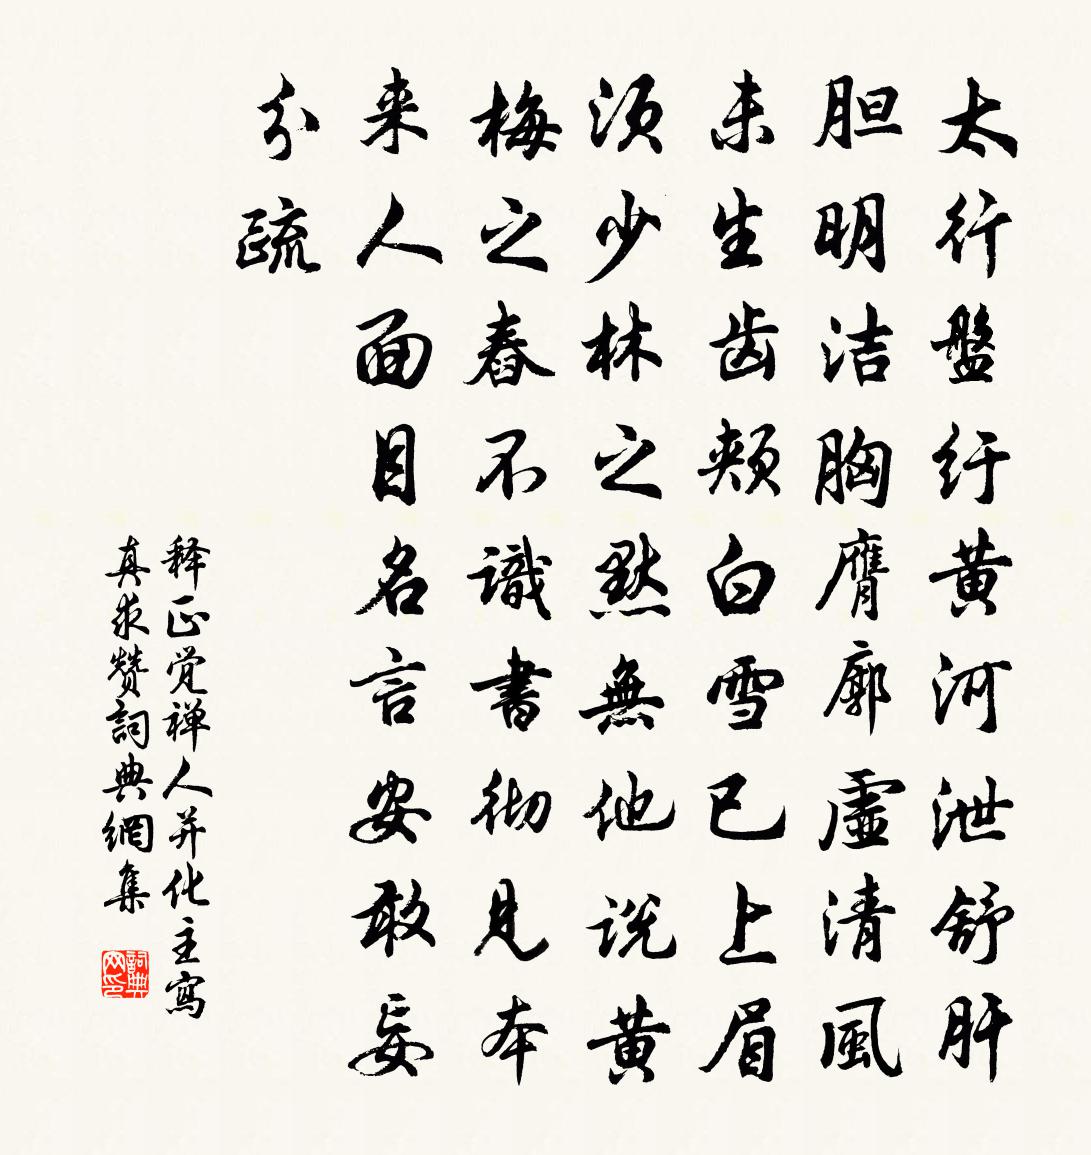 太行盤纡黄河泄舒肝
胆明洁胸膺廓虛清風
未生齿頰白雪已上眉
须少林之默無他说黄
梅之春不識書彻見本
来人面目名言安敢妄
分疏
释正觉禅人并化主寫
真求赞詞典網集
詞典网印